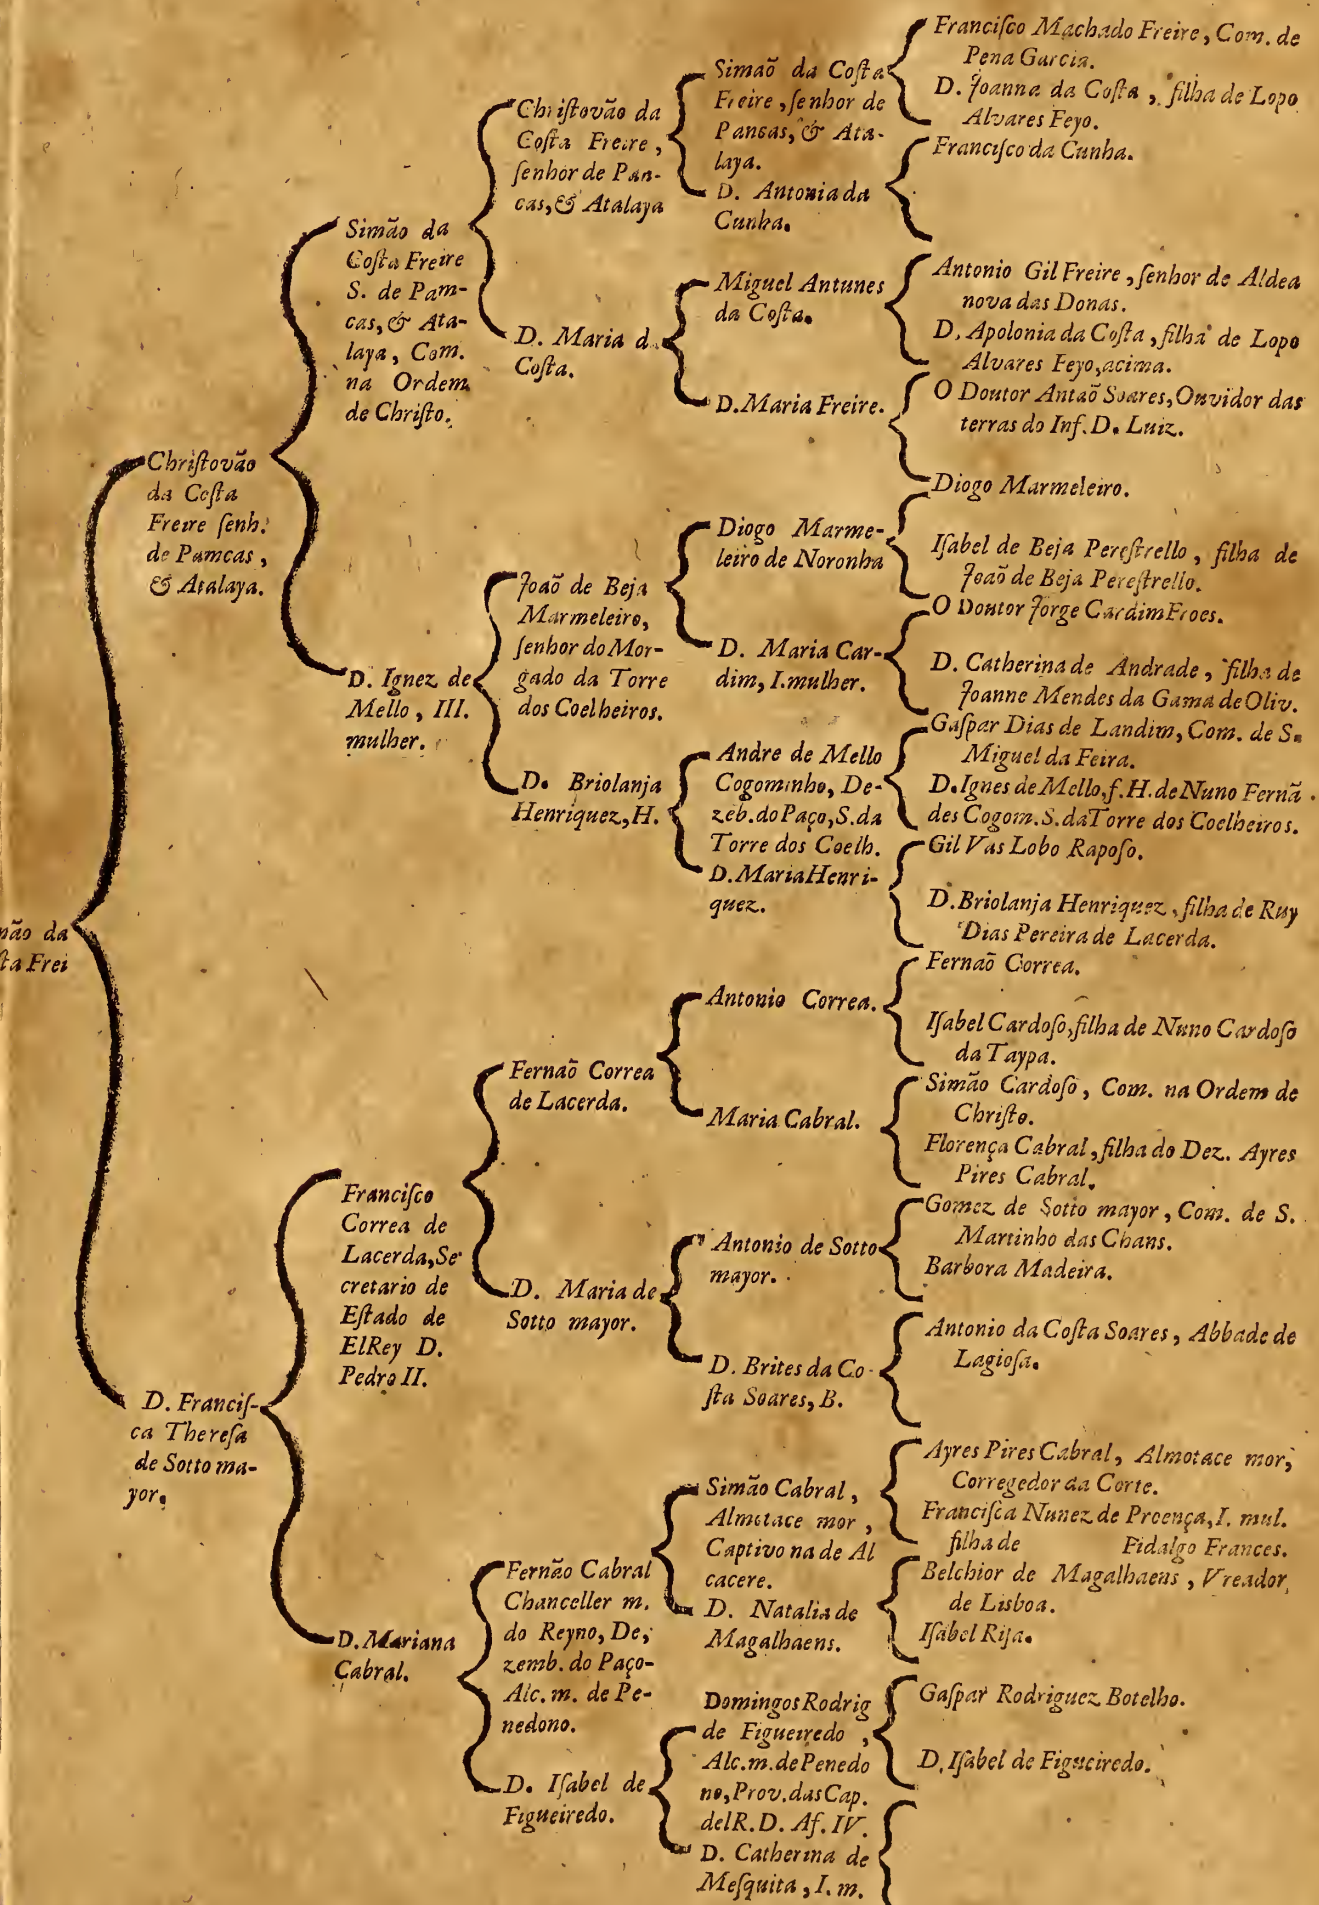 não da
ſta Frei
Chriſtovão
da Coſta
Freire ſenh.
de Pamcas,
& Atalaya.
D. Franciſ-
ca Thereſa
de Sotto ma-
yor.
Simão da
Coſta Freire
S. de Pam-
cas, & Ata-
laya, Com.
na Ordem
de Chriſto.
D. Ignez de
Mello, III.
mulher.
Franciſco
Correa de
Lacerda, Se-
cretario de
Eſtado de
ElRey D.
Pedro II.
D. Mariana
Cabral.
Chriſtovão da
Coſta Freire,
ſenhor de Pan-
cas, & Atalaya
D. Maria d
Coſta.
Joaõ de Beja
Marmeleiro,
ſenhor do Mor-
gado da Torre
dos Coelheiros.
D. Briolanja
Henriquez, H.
Fernaõ Correa
de Lacerda.
D. Maria de
Sotto mayor.
Fernão Cabral
Chanceller m.
do Reyno, De,
zemb. do Paço-
Alc. m. de Pe-
nedono.
D. Iſabel de
Figueiredo.
Simaõ da Coſta
Freire, ſenhor de
Pancas, & Ata-
laya.
D. Antonia da
Cunha.
Miguel Antunes
da Coſta.
D. Maria Freire.
Diogo Marme-
leiro de Noronha
D. Maria Car-
dim, I. mulher.
Andre de Mello
Cogominho, De-
zeb. do Paço, S. da
Torre dos Coelh.
D. Maria Henri-
quez.
Antonio Correa.
Maria Cabral.
Antonio de Sotto
mayor.
D. Brites da Co-
ſta Soares, B.
Simão Cabral,
Almotace mor,
Captivo na de Al
cacere.
D. Natalia de
Magalhaens.
Domingos Rodrig
de Figueiredo,
Alc. m. de Penedo
no, Prov. das Cap.
del R. D. Af. IV.
D. Catherina de
Meſquita, I. m.
Franciſco Machado Freire, Com. de
Pena Garcia.
D. Joanna da Coſta, filha de Lopo
Alvares Feyo.
Franciſco da Cunha.
Antonio Gil Freire, ſenhor de Aldea
nova das Donas.
D. Apolonia da Coſta, filha de Lopo
Alvares Feyo, acima.
O Doutor Antaõ Soares, Ouvidor das
terras do Inf. D. Luiz.
Diogo Marmeleiro.
Iſabel de Beja Pereſtrello, filha de
Joaõ de Beja Pereſtrello.
O Doutor Jorge Cardim Froes.
D. Catherina de Andrade, filha de
Joanne Mendes da Gama de Oliv.
Gaſpar Dias de Landim, Com. de S.
Miguel da Feira.
D. Ignes de Mello, f. H. de Nuno Fernã
des Cogom. S. da Torre dos Coelheiros.
Gil Vas Lobo Rapoſo.
D. Briolanja Henriquez, filha de Ruy
Dias Pereira de Lacerda.
Fernaõ Correa.
Iſabel Cardoſo, filha de Nuno Cardoſo
da Taypa.
Simão Cardoſo, Com. na Ordem de
Chriſto.
Florença Cabral, filha do Dez. Ayres
Pires Cabral.
Gomez de Sotto mayor, Com. de S.
Martinho das Chans.
Barbora Madeira.
Antonio da Coſta Soares, Abbade de
Lagioſa.
Ayres Pires Cabral, Almotace mor,
Corregedor da Corte.
Franciſca Nunez de Proença, I. mul.
filha de Fidalgo Frances.
Belchior de Magalhaens, Vreador
de Lisboa.
Iſabel Rija.
Gaſpar Rodriguez Botelho.
D. Iſabel de Figueiredo.